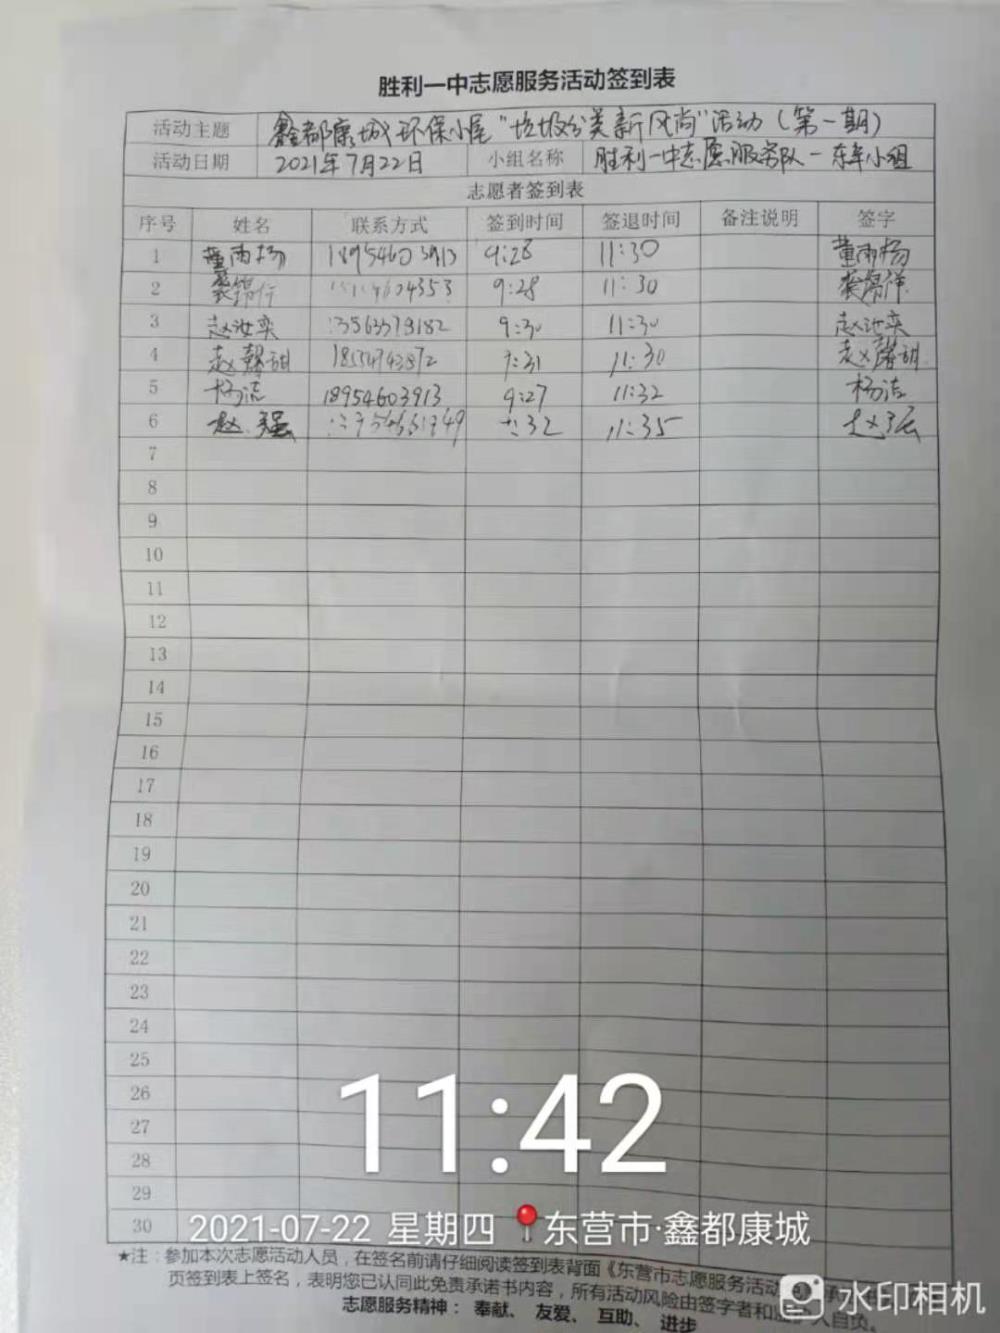 胜利一中志愿服务活动签到表
活动主题 鑫都康城环保小尾"垃圾分类新风尚"活动(第一期)
活动日期 2021年7月22日 小组名称 胜利一中志愿服务队一东车小组
志愿者签到表
序号 姓名 联系方式 签到时间 签退时间 备注说明 签字
1 董雨杨 18954603913 9:28 11:30 董雨杨
2 9:28 11:30
3 赵汝奕 13563379182 9:30 11:30 赵汝奕
4 赵馨甜 11:30 赵馨甜
5 杨洁 18954603913 9:27 11:32 杨洁
6 赵强 11:35 赵强
7
8
9
10
11
12
13
14
15
16
17
18
19
20
21
22
23
24
25
26
27
28
29
30
11:42
2021-07-22 星期四 东营市·鑫都康城
★注:参加本次志愿活动人员,在签名前请仔细阅读签到表背面《东营市志愿服务活动
页签到表上签名,表明您已认同此免责承诺书内容,所有活动风险由签字者和 人自负。
志愿服务精神: 奉献、 友爱、 互助、 进步
水印相机